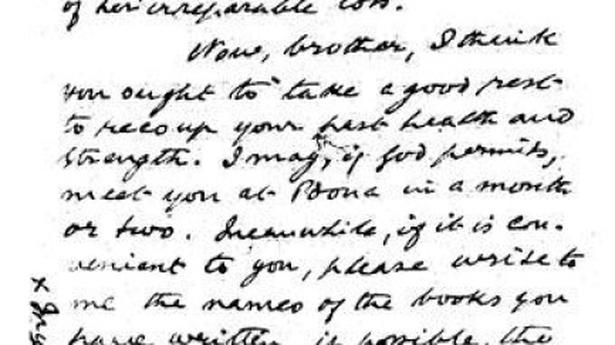 of her irreparable loss.
Now, brother, I think
you ought to take a good rest
to recoup your past health and
strength. I may, if God permits,
meet you at Poona in a month
or two. Meanwhile, if it is con-
venient to you, please write to
me the names of the books you
have written, if possible, the
x